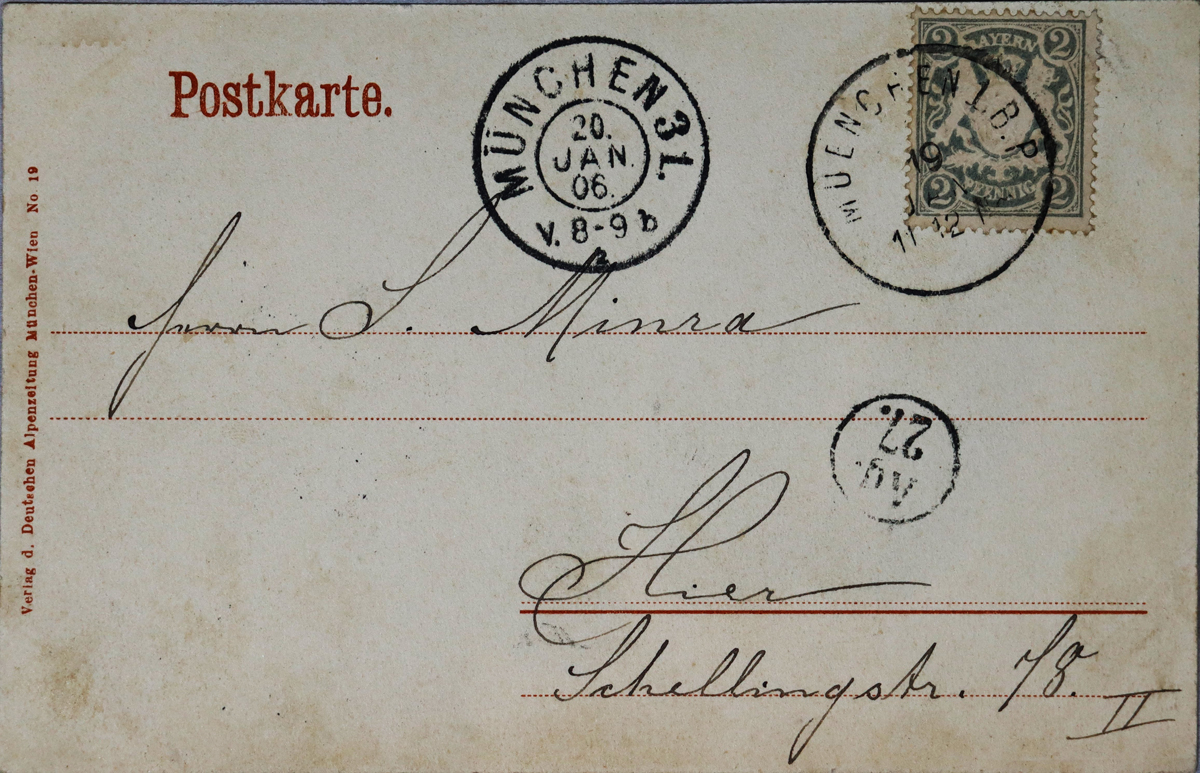 Postkarte.
MÜNCHEN 31.
20.
JAN.
06.
V. 8-9 b
a
2 BAYERN 2
2 PFENNIG 2
MUENCHEN 1. B. P
19
11-12
Herrn S. Minra
27.
Ag.
Hier
Schellingstr. 78.
II
Verlag d. Deutschen Alpenzeitung München-Wien No 19